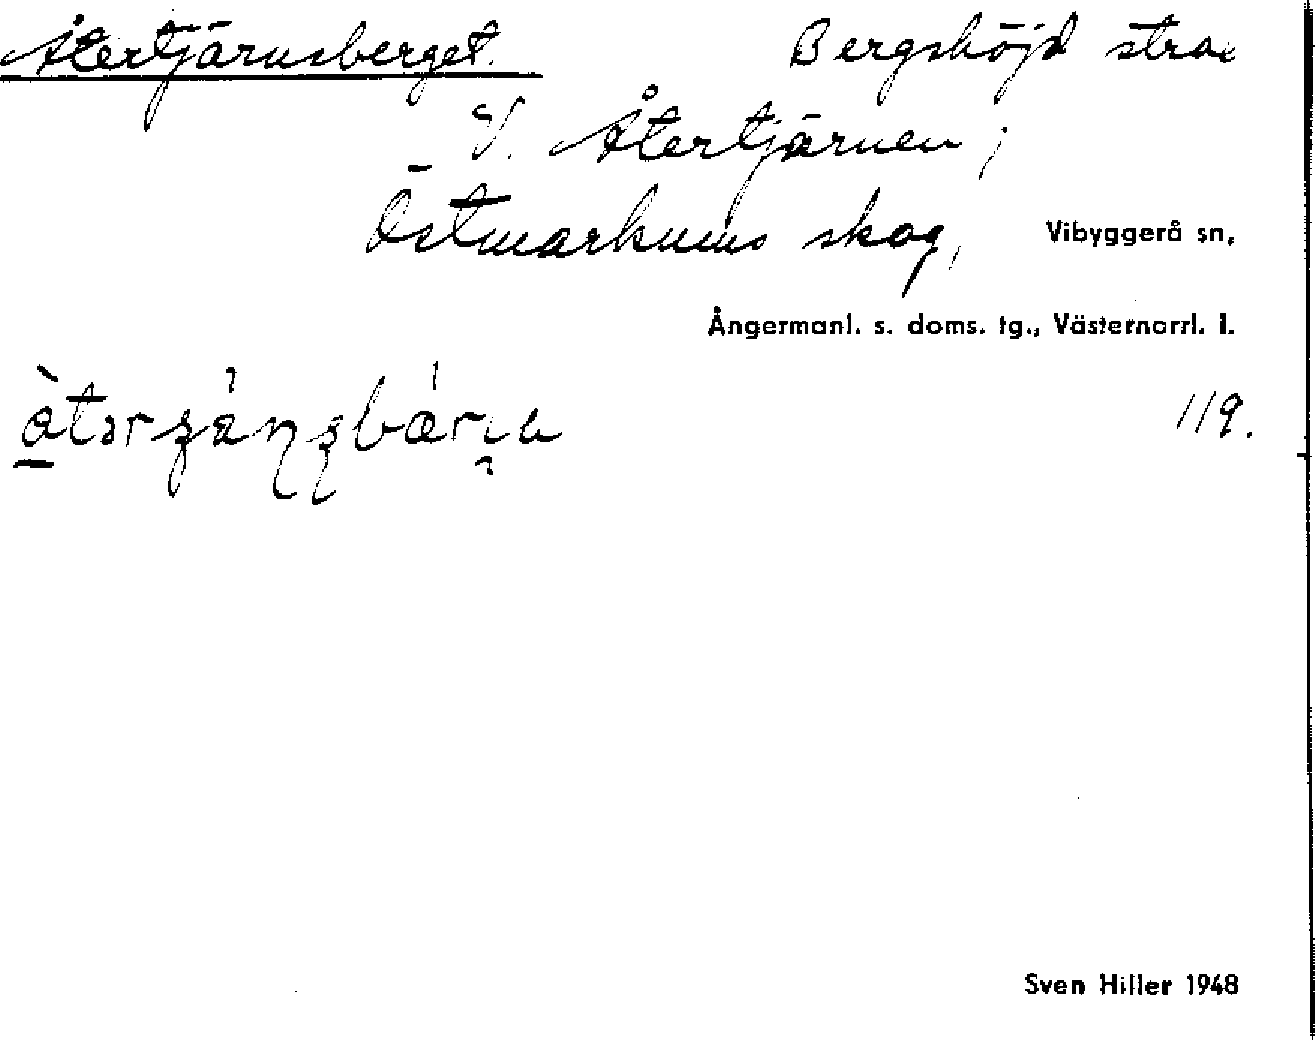 Återtjärnsberget. Bergshöjd strax
V. Återtjärnen;
Östmarkums skog, Vibyggerå sn,
Ångermanl. s. doms. tg., Västernorrl. l.
119.
Sven Hiller 1948